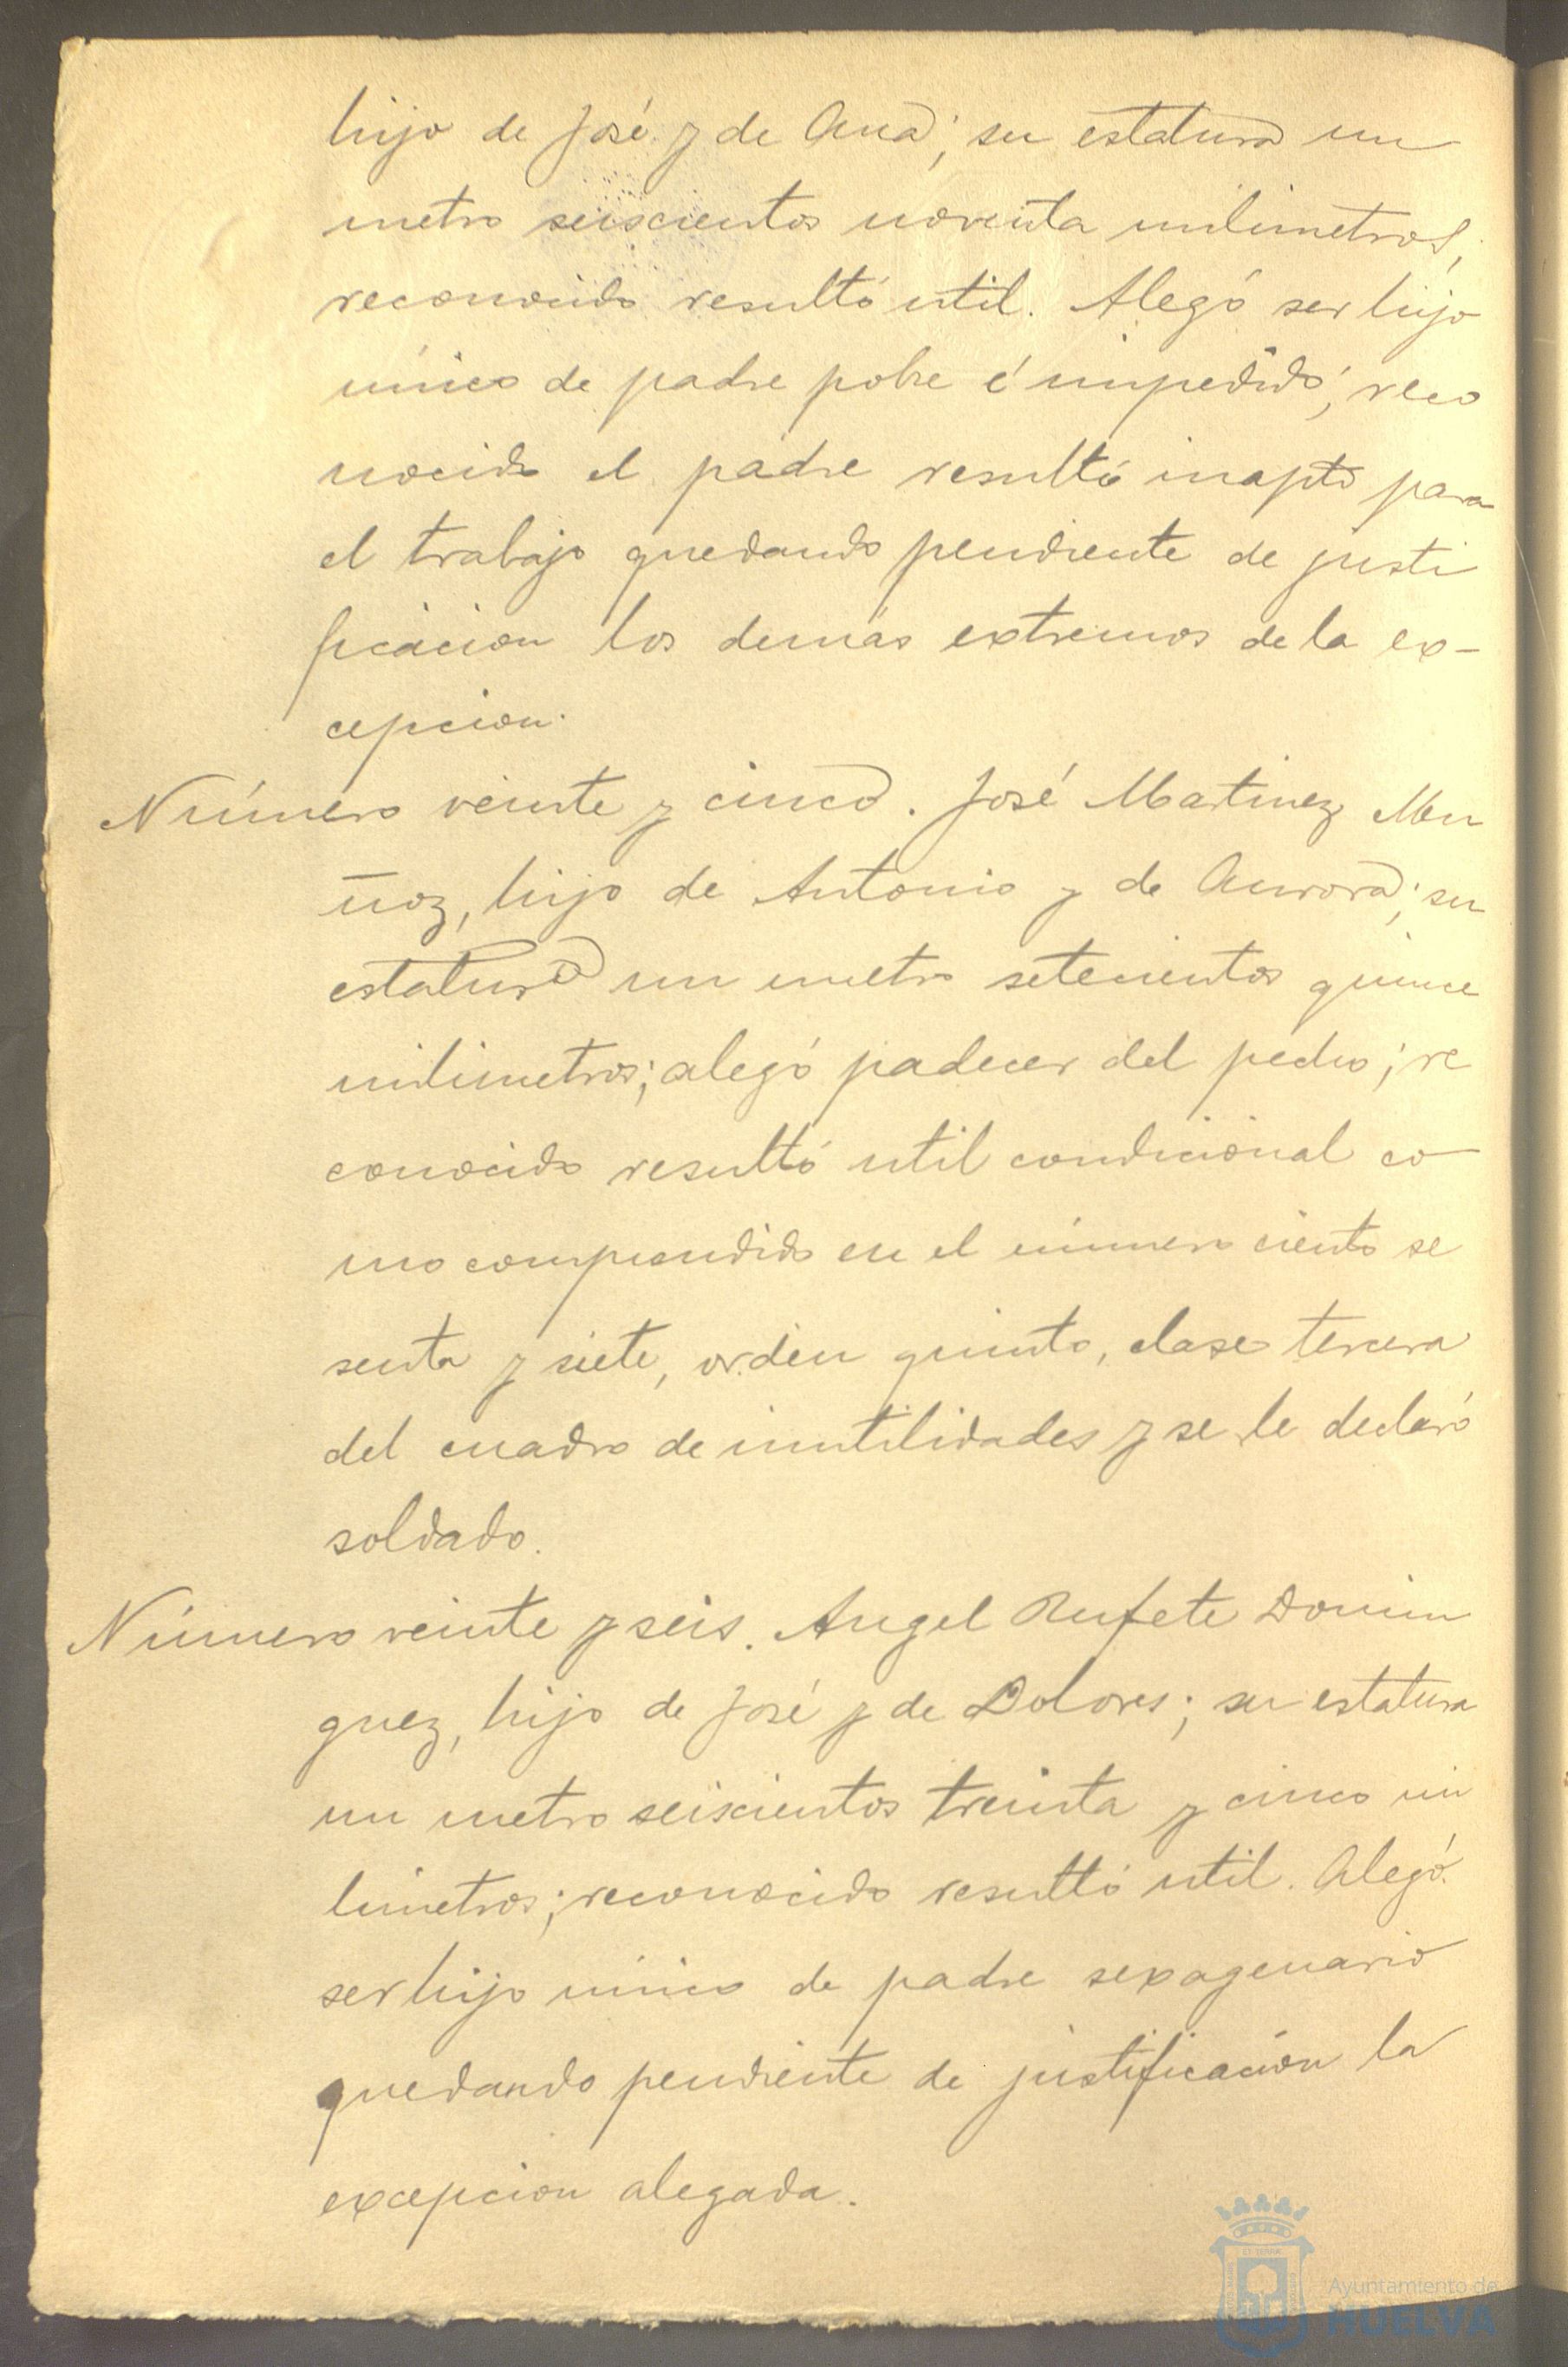 hijo de José y de Ana; su estatura un
metro seiscientos noventa milimetros,
reconocido resultó util. Alegó ser hijo
único de padre pobre é impedido; reco
nocido el padre resultó inapto para
el trabajo quedando pendiente de justi
ficacion los demás extremos de la ex-
cepcion.
Número veinte y cinco. José Martinez Mu
ñoz, hijo de Antonio y de Aurora; su
estatura un metro setecientos quince
milimetros; alegó padecer del pecho; re
conocido resultó util condicional co
mo comprendido en el número ciento se
senta y siete, orden quinto, clase tercera
del cuadro de inutilidades y se le declaró
soldado.
Número veinte y seis. Angel Rufete Domin
guez, hijo de José y de Dolores; su estatura
un metro seiscientos treinta y cinco mi
limetros; reconocido resultó util. Alegó
ser hijo único de padre sexagenario
quedando pendiente de justificación la
excepcion alegada.
Ayuntamiento de
HUELVA